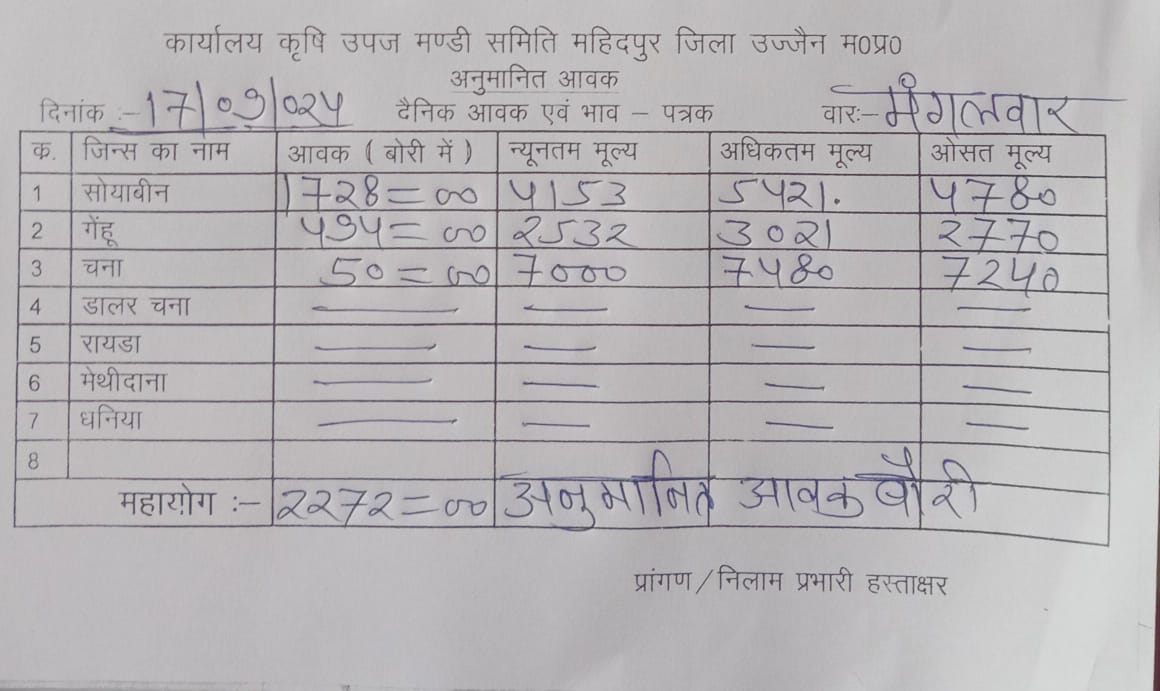 कार्यालय कृषि उपज मण्डी समिति महिदपुर जिला उज्जैन म०प्र०
अनुमानित आवक
दिनांक :- 17/09/024 दैनिक आवक एवं भाव – पत्रक वारः- मंगलवार
क. जिन्स का नाम आवक ( बोरी में ) न्यूनतम मूल्य अधिकतम मूल्य ओसत मूल्य
1 सोयाबीन 1728=00 4153 5421. 4780
2 गेंहू 494=00 2532 3021 2770
3 चना 50=00 7000 7480 7240
4 डालर चना — — — —
5 रायडा — — — —
6 मेथीदाना — — — —
7 धनिया — — — —
8
महायोग :- 2272=00 अनुमानित आवक बोरी
प्रांगण / निलाम प्रभारी हस्ताक्षर